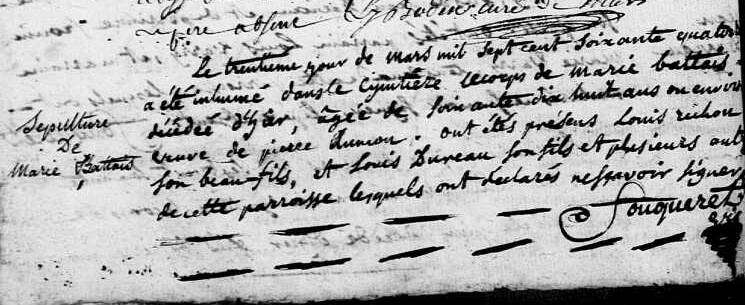 absent
Le trentieme jour de mars mil sept cent soixante quator
a été inhumé dans le Cymtière le corps de marie battais
décédée d'hier, agée de soixante dix huit ans ou environ
veuve de pierre . ont étés présens Louis richou
son beau-fils, et Louis Dureau son fils et plusieurs aut
de cette parroisse lesquels ont déclarés ne sçavoir signer
Fouqueret
Sepulture
De
Marie Battais